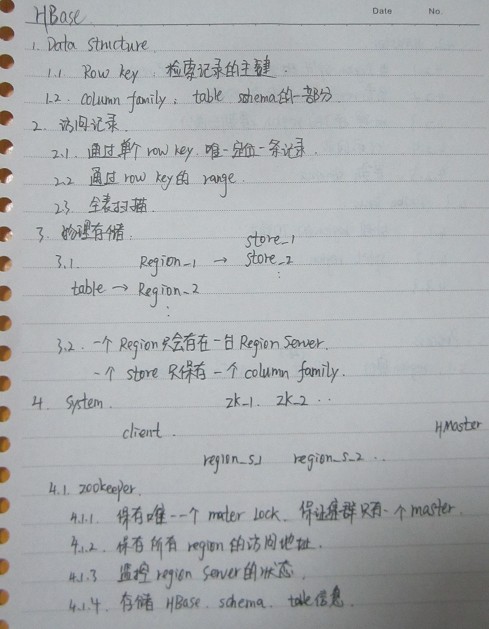 HBase
Date No.
1. Data structure
1.1 Row key, 检索记录的主键.
1.2. column family, table schema的一部分
2. 访问记录.
2.1. 通过单个 row key. 唯一定位一条记录.
2.2 通过 row key 的 range.
2.3. 全表扫描.
3. 物理存储.
store_1
3.1. Region_1 → store_2
table → Region_2 ⋮
⋮
3.2. 一个 Region 只会存在一台 Region Server.
一个 store 只保存一个 column family.
4. System. zk_1. zk_2 ..
client. HMaster
region_s_1 region_s_2 ..
4.1. zookeeper.
4.1.1. 保有唯一一个 mater Lock. 保证集群只有一个 master.
4.1.2. 保有所有 region 的访问地址.
4.1.3 监控 region server 的状态.
4.1.4. 存储 HBase. schema. table信息.